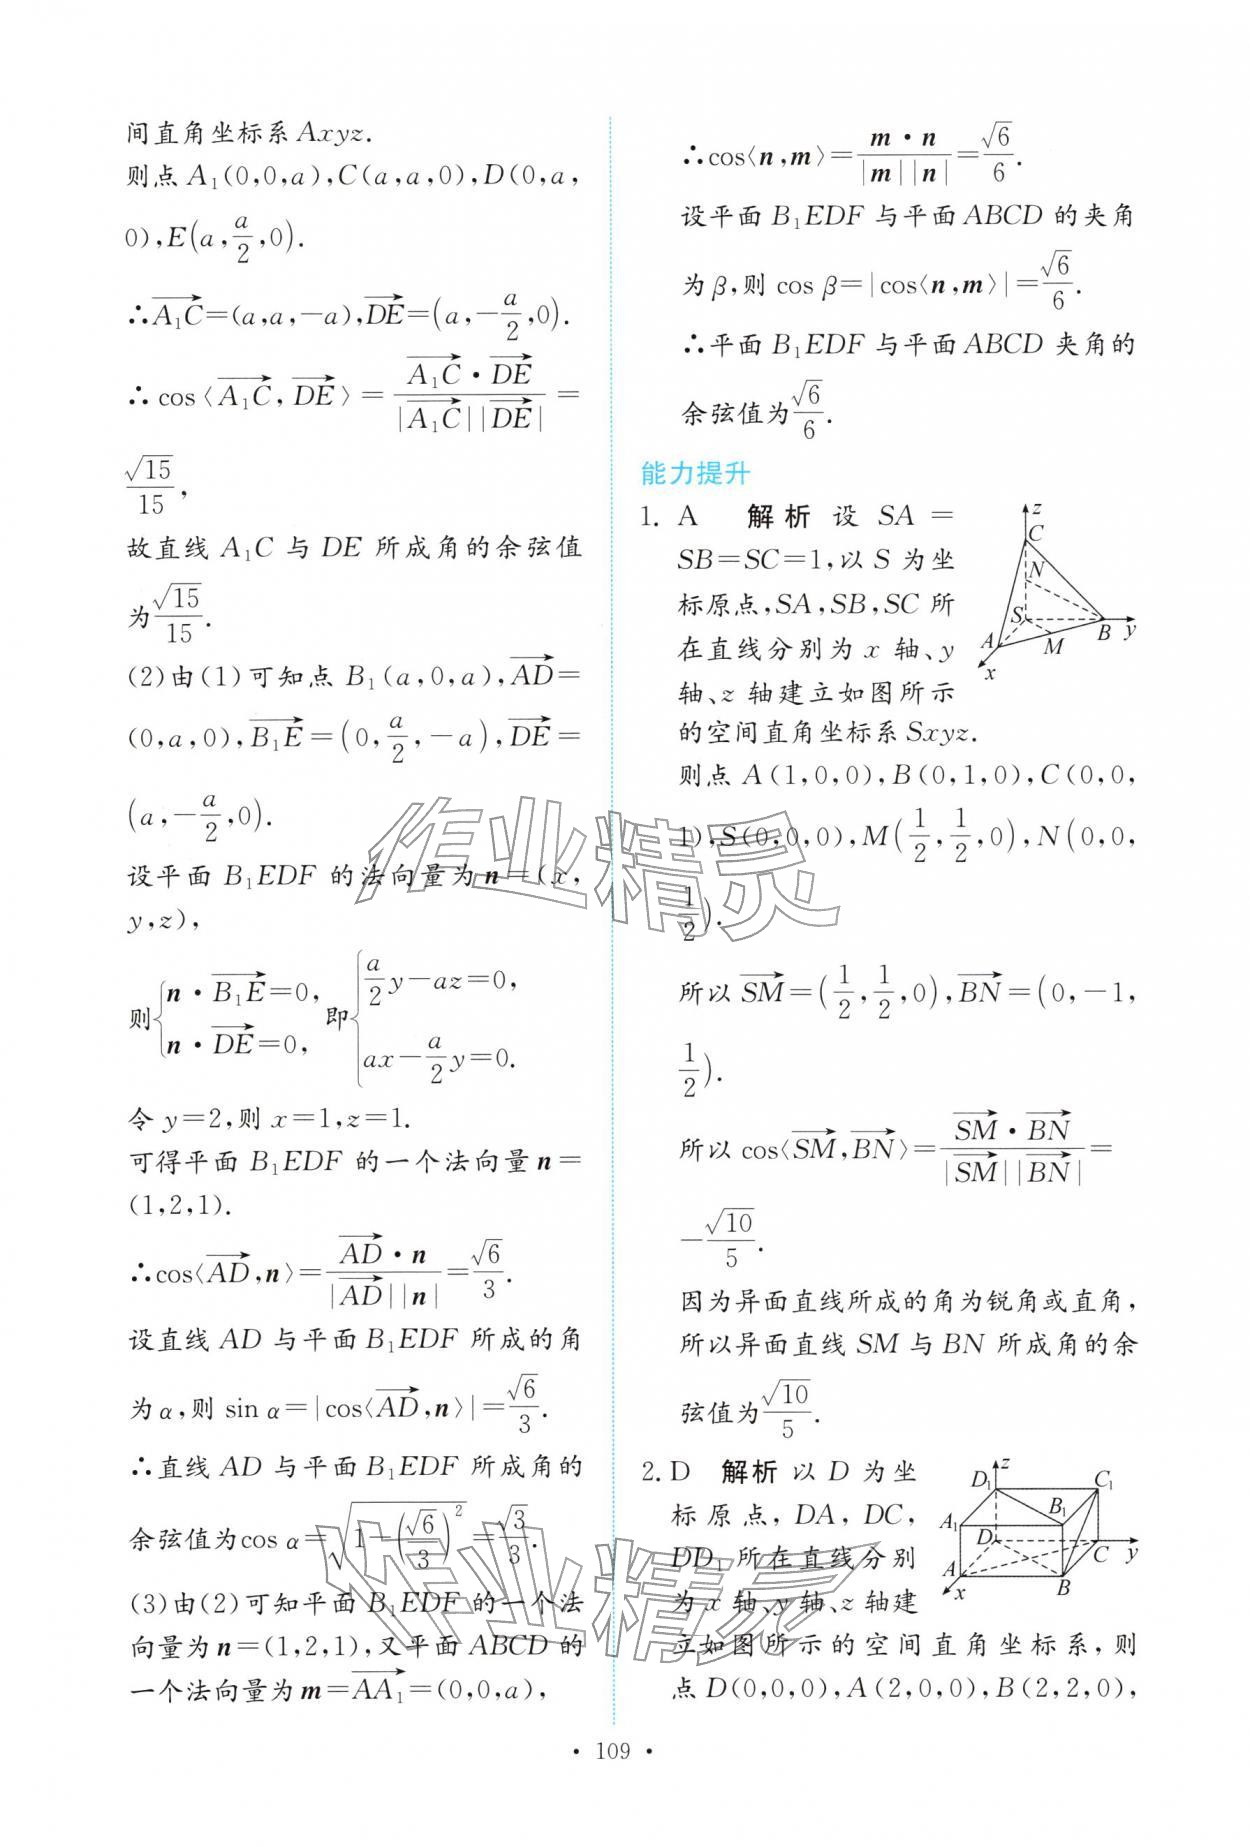 间直角坐标系Axyz.
则点A₁(0,0,a),C(a,a,0),D(0,a,
0),E(a,a/2,0).
∴A₁C→=(a,a,-a),DE→=(a,-a/2,0).
∴cos⟨A₁C→,DE→⟩=(A₁C→·DE→)/(|A₁C→||DE→|)=
√15/15,
故直线A₁C与DE所成角的余弦值
为√15/15.
(2)由(1)可知点B₁(a,0,a),AD→=
(0,a,0),B₁E→=(0,a/2,-a),DE→=
(a,-a/2,0).
设平面B₁EDF的法向量为n=(x,
y,z),
则{n·B₁E→=0, n·DE→=0, 即{a/2y-az=0, ax-a/2y=0.
令y=2,则x=1,z=1.
可得平面B₁EDF的一个法向量n=
(1,2,1).
∴cos⟨AD→,n⟩=(AD→·n)/(|AD→||n|)=√6/3.
设直线AD与平面B₁EDF所成的角
为α,则sin α=|cos⟨AD→,n⟩|=√6/3.
∴直线AD与平面B₁EDF所成角的
余弦值为cos α=√(1-(√6/3)²)=√3/3.
(3)由(2)可知平面B₁EDF的一个法
向量为n=(1,2,1),又平面ABCD的
一个法向量为m=AA₁→=(0,0,a),
∴cos⟨n,m⟩=(m·n)/(|m||n|)=√6/6.
设平面B₁EDF与平面ABCD的夹角
为β,则cos β=|cos⟨n,m⟩|=√6/6.
∴平面B₁EDF与平面ABCD夹角的
余弦值为√6/6.
能力提升
1. A 解析 设SA=
SB=SC=1,以S为坐
标原点,SA,SB,SC所
在直线分别为x轴、y
轴、z轴建立如图所示
的空间直角坐标系Sxyz.
z
C
N
S
A
M
B
y
x
则点A(1,0,0),B(0,1,0),C(0,0,
1),S(0,0,0),M(1/2,1/2,0),N(0,0,
1/2).
所以SM→=(1/2,1/2,0),BN→=(0,-1,
1/2).
所以cos⟨SM→,BN→⟩=(SM→·BN→)/(|SM→||BN→|)=
-√10/5.
因为异面直线所成的角为锐角或直角,
所以异面直线SM与BN所成角的余
弦值为√10/5.
2. D 解析 以D为坐
标原点,DA,DC,
DD₁所在直线分别
为x轴、y轴、z轴建
立如图所示的空间直角坐标系,则
点D(0,0,0),A(2,0,0),B(2,2,0),
D₁
z
C₁
A₁
B₁
D
C
y
A
B
x
作业精灵
作业精灵
· 109 ·